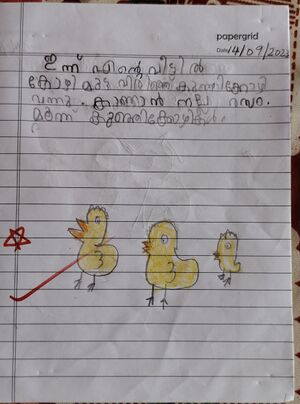 papergrid
Date: 14/09/2023
ഇന്ന് എന്റെ വീട്ടിൽ
കോഴി മുട്ട വിരിഞ്ഞ് കുഞ്ഞിക്കോഴി
വന്നു. കാണാൻ നല്ല രസം.
മൂന്ന് കുഞ്ഞിക്കോഴികൾ.